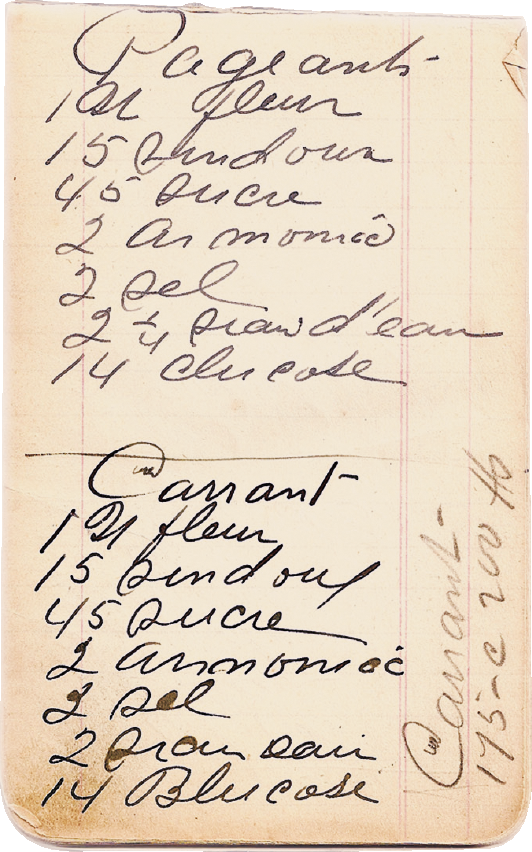 Pageants
1 qt fleur
15 sindoux
45 sucre
2 armonic
2 sel
2 1/4 siaw d'eau
14 Clucose
Currant
1 qt fleur
15 sindoux
45 sucre
2 armoniac
2 sel
2 siau eau
14 Glucose
Currant
175-c 200 lb